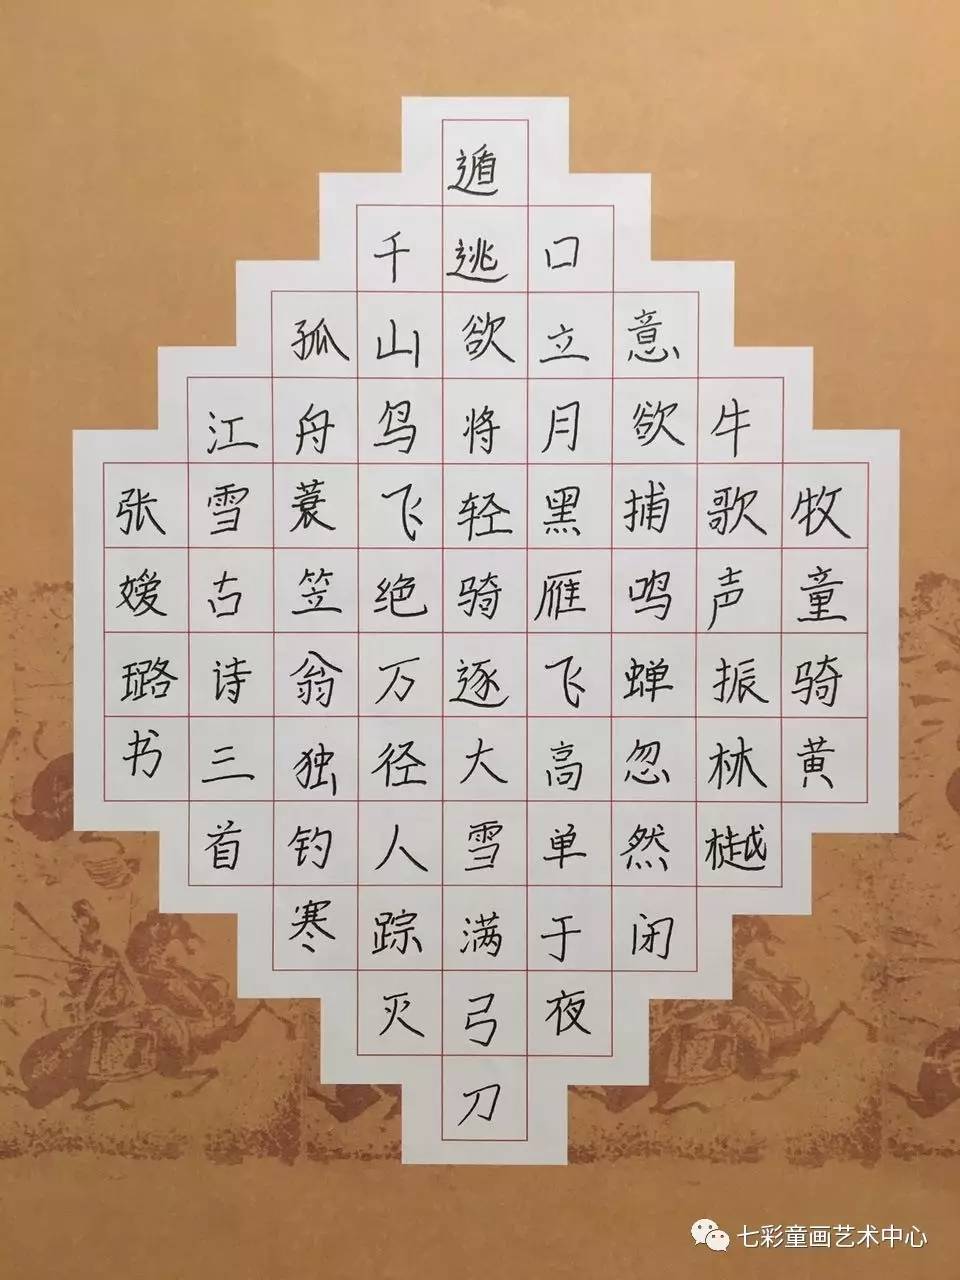 牧童骑黄
牛歌声振林樾
意欲捕鸣蝉忽然闭
口立月黑雁飞高单于夜
遁逃欲将轻骑逐大雪满弓刀
千山鸟飞绝万径人踪灭
孤舟蓑笠翁独钓寒
江雪古诗三首
张嫒璐书
七彩童画艺术中心